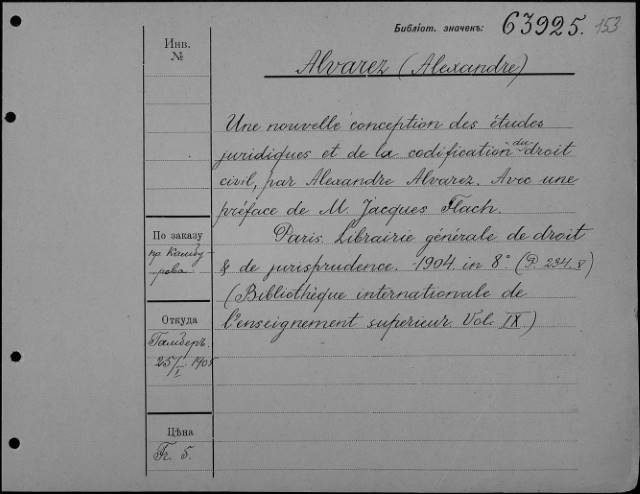 Библіот. значекъ: 63925. 153
Инв. №
Alvarez (Alexandre)
Une nouvelle conception des études
juridiques et de la codification du droit
civil, par Alexandre Alvarez. Avec une
préface de M. Jacques Flach.
Paris. Librairie générale de droit
& de jurisprudence. 1904. in 8° (P. 234. V)
(Bibliothèque internationale de
l'enseignement superieur. Vol. IX)
По заказу
пр. Камбу-
рова
Откуда
25/I 1905
Цѣна
Fr. 5.